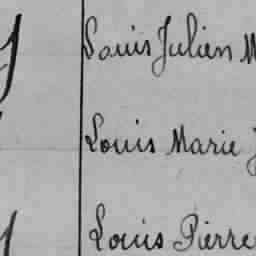 Louis Julien M
Louis Marie J
Louis Pierre